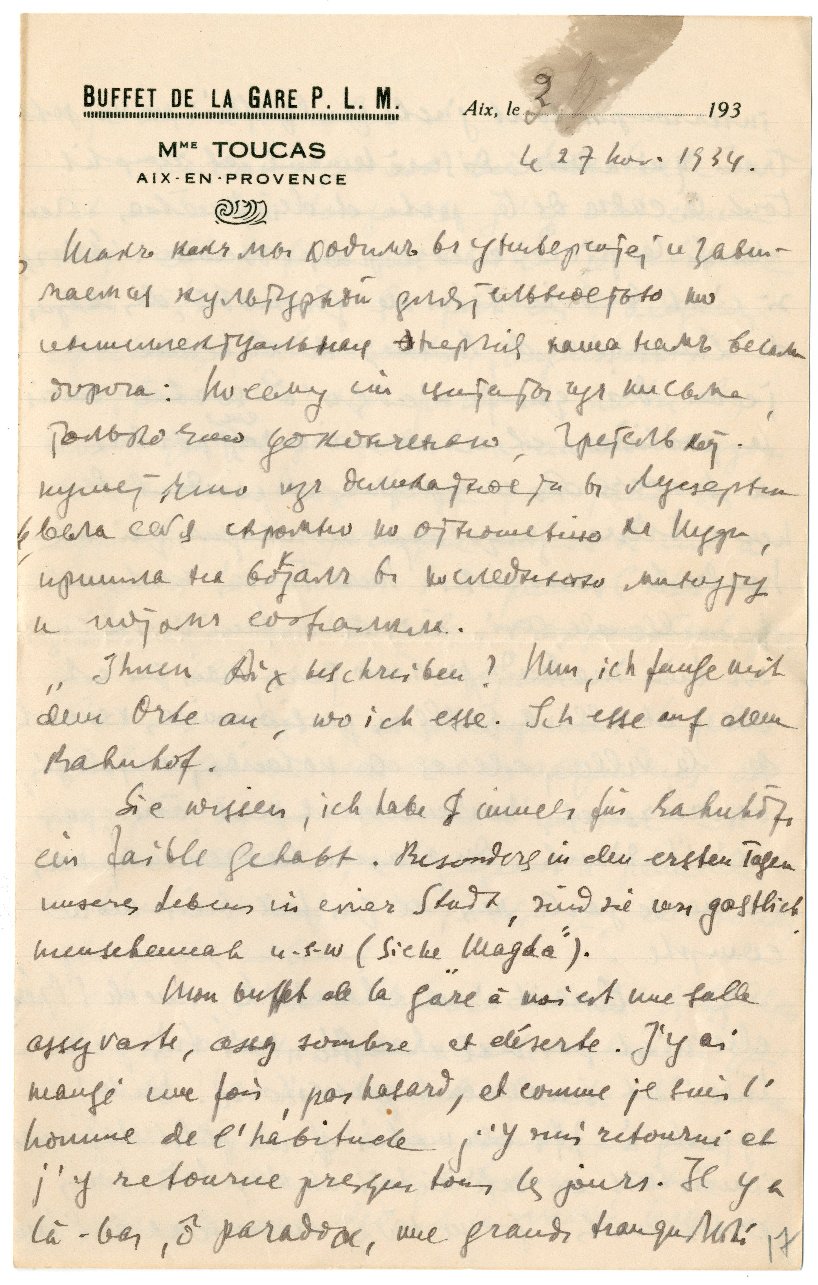 BUFFET DE LA GARE P. L. M.
Aix, le 193
MME TOUCAS
AIX-EN-PROVENCE
le 27 Nov. 1934.
Такъ какъ мы ходимъ въ университетъ и зани-
маемся культурной дѣятельностью то
интеллектуальная энергія наша намъ весьма
дорога: Посему сіи цитаты изъ письма,
только что доконченнаго,
что изъ деликатности въ
вела себя скромно по отношенію къ
пришла на вокзалъ въ последнюю минуту
и потомъ
„ Ihnen Aix beschreiben? Nun, ich fange mit
dem Orte an, wo ich esse. Ich esse auf dem
Bahnhof.
Sie wissen, ich habe immer für Bahnhöfe
ein faible gehabt. Besonders in den ersten Tagen
unseres Lebens in einer Stadt, sind sie uns gastlich,
menschennah u-s-w (Siehe „Magda").
Mon buffet de la gare à moi est une salle
assez vaste, assez sombre et déserte. J'y ai
mangé une fois, par hasard, et comme je suis l'
homme de l'habitude j'y suis retourné et
j'y retourne presque tous les jours. Il y a
là-bas, ô paradoxe, une grande tranquillité
17